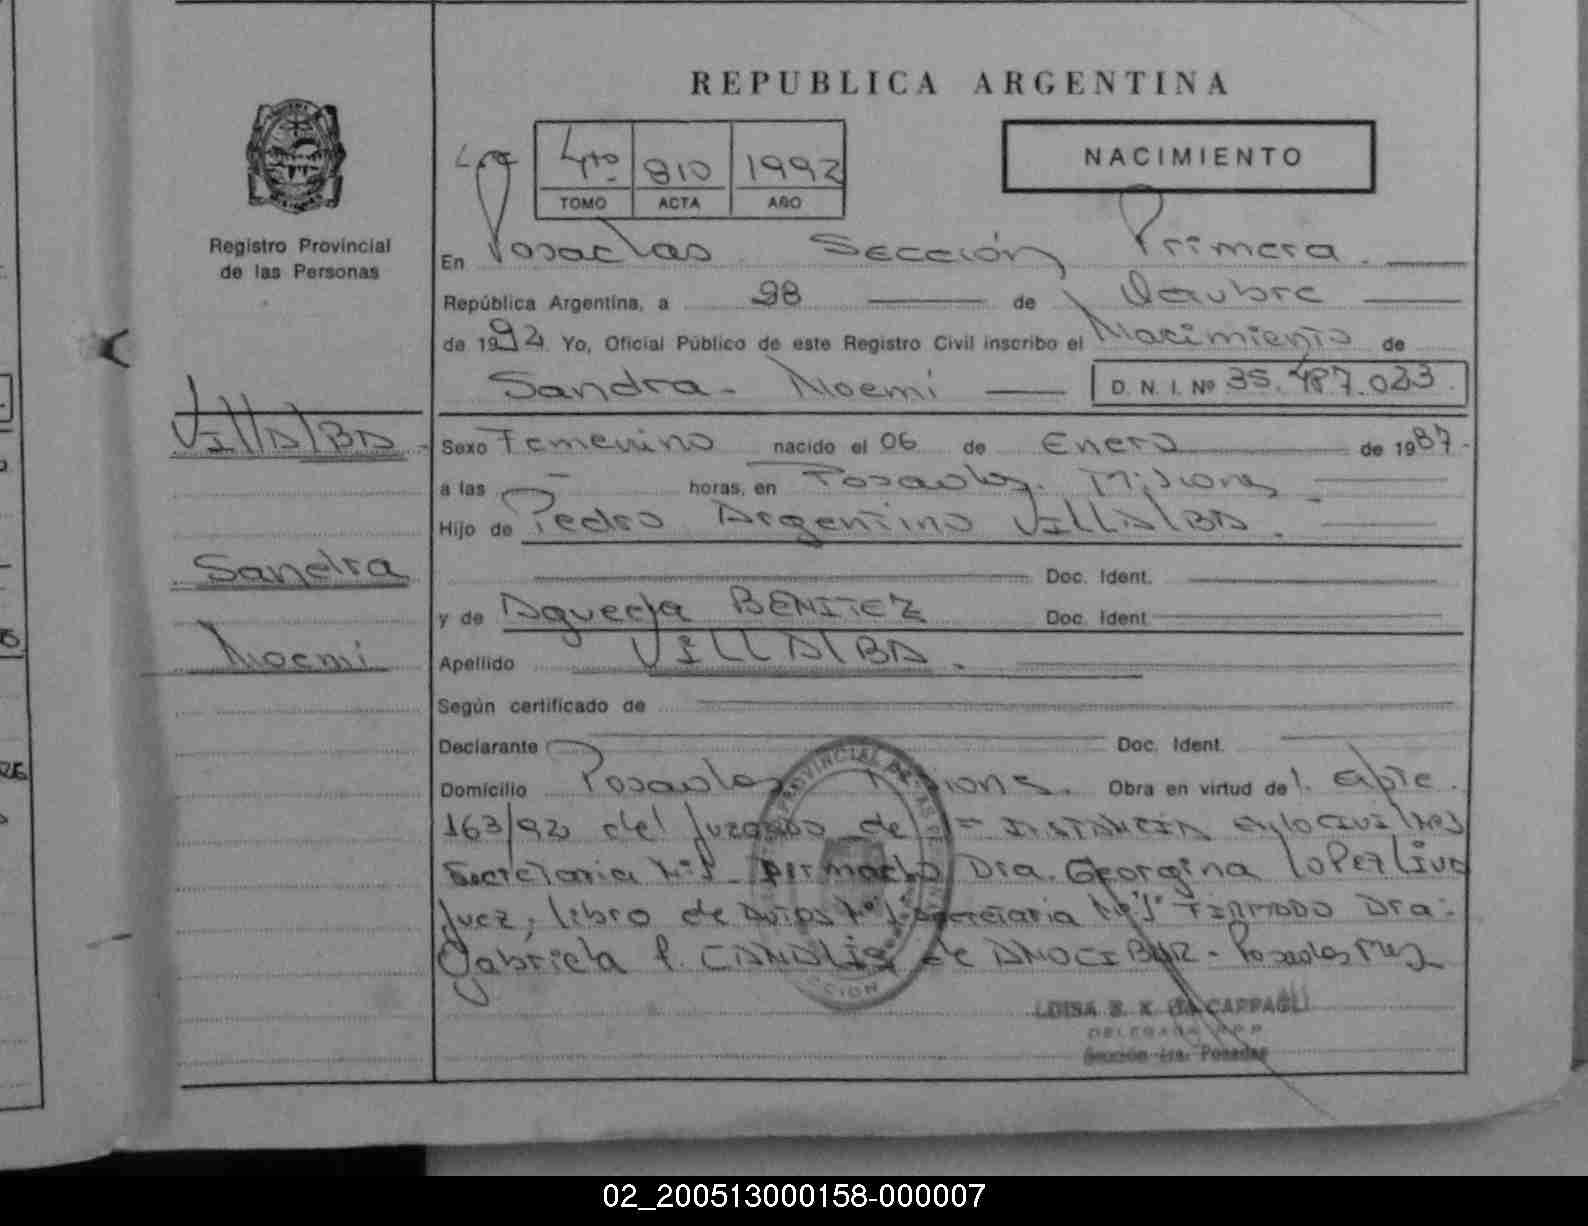 REPUBLICA ARGENTINA
Registro Provincial
de las Personas
1ra 4to 810 1992
TOMO ACTA AÑO
NACIMIENTO
En Posadas Sección Primera.
República Argentina, a 28 de Octubre
de 1992 Yo, Oficial Público de este Registro Civil inscribo el Nacimiento de
Sandra - Noemi D. N. I. Nº 35.487.023.
VillAlBA -
Sandra
Noemi
Sexo Femenino nacido el 06 de Enero de 1987.-
a las horas, en Posadas. Misiones
Hijo de Pedro Argentino VillAlBA.
Doc. Ident.
y de Agueda BENITEZ Doc. Ident
Apellido VillAlBA.
Según certificado de
Declarante Doc. Ident.
Domicilio Posadas Misiones. Obra en virtud de Expte.
163/92 del Juzgado de 1= INSTANCIA
Secretaria Nº1 Firmado Dra. Georgina
Juez, libro de Autos Nº1 Secretaria Nº1 FIRMADO Dra:
Gabriela P. CANALIS de ANOCIBAR - Posadas
LUISA E. K. DE CAPPAGLI
DELEGADA R.P.P
Sección 1ra. Posadas
02_200513000158-000007